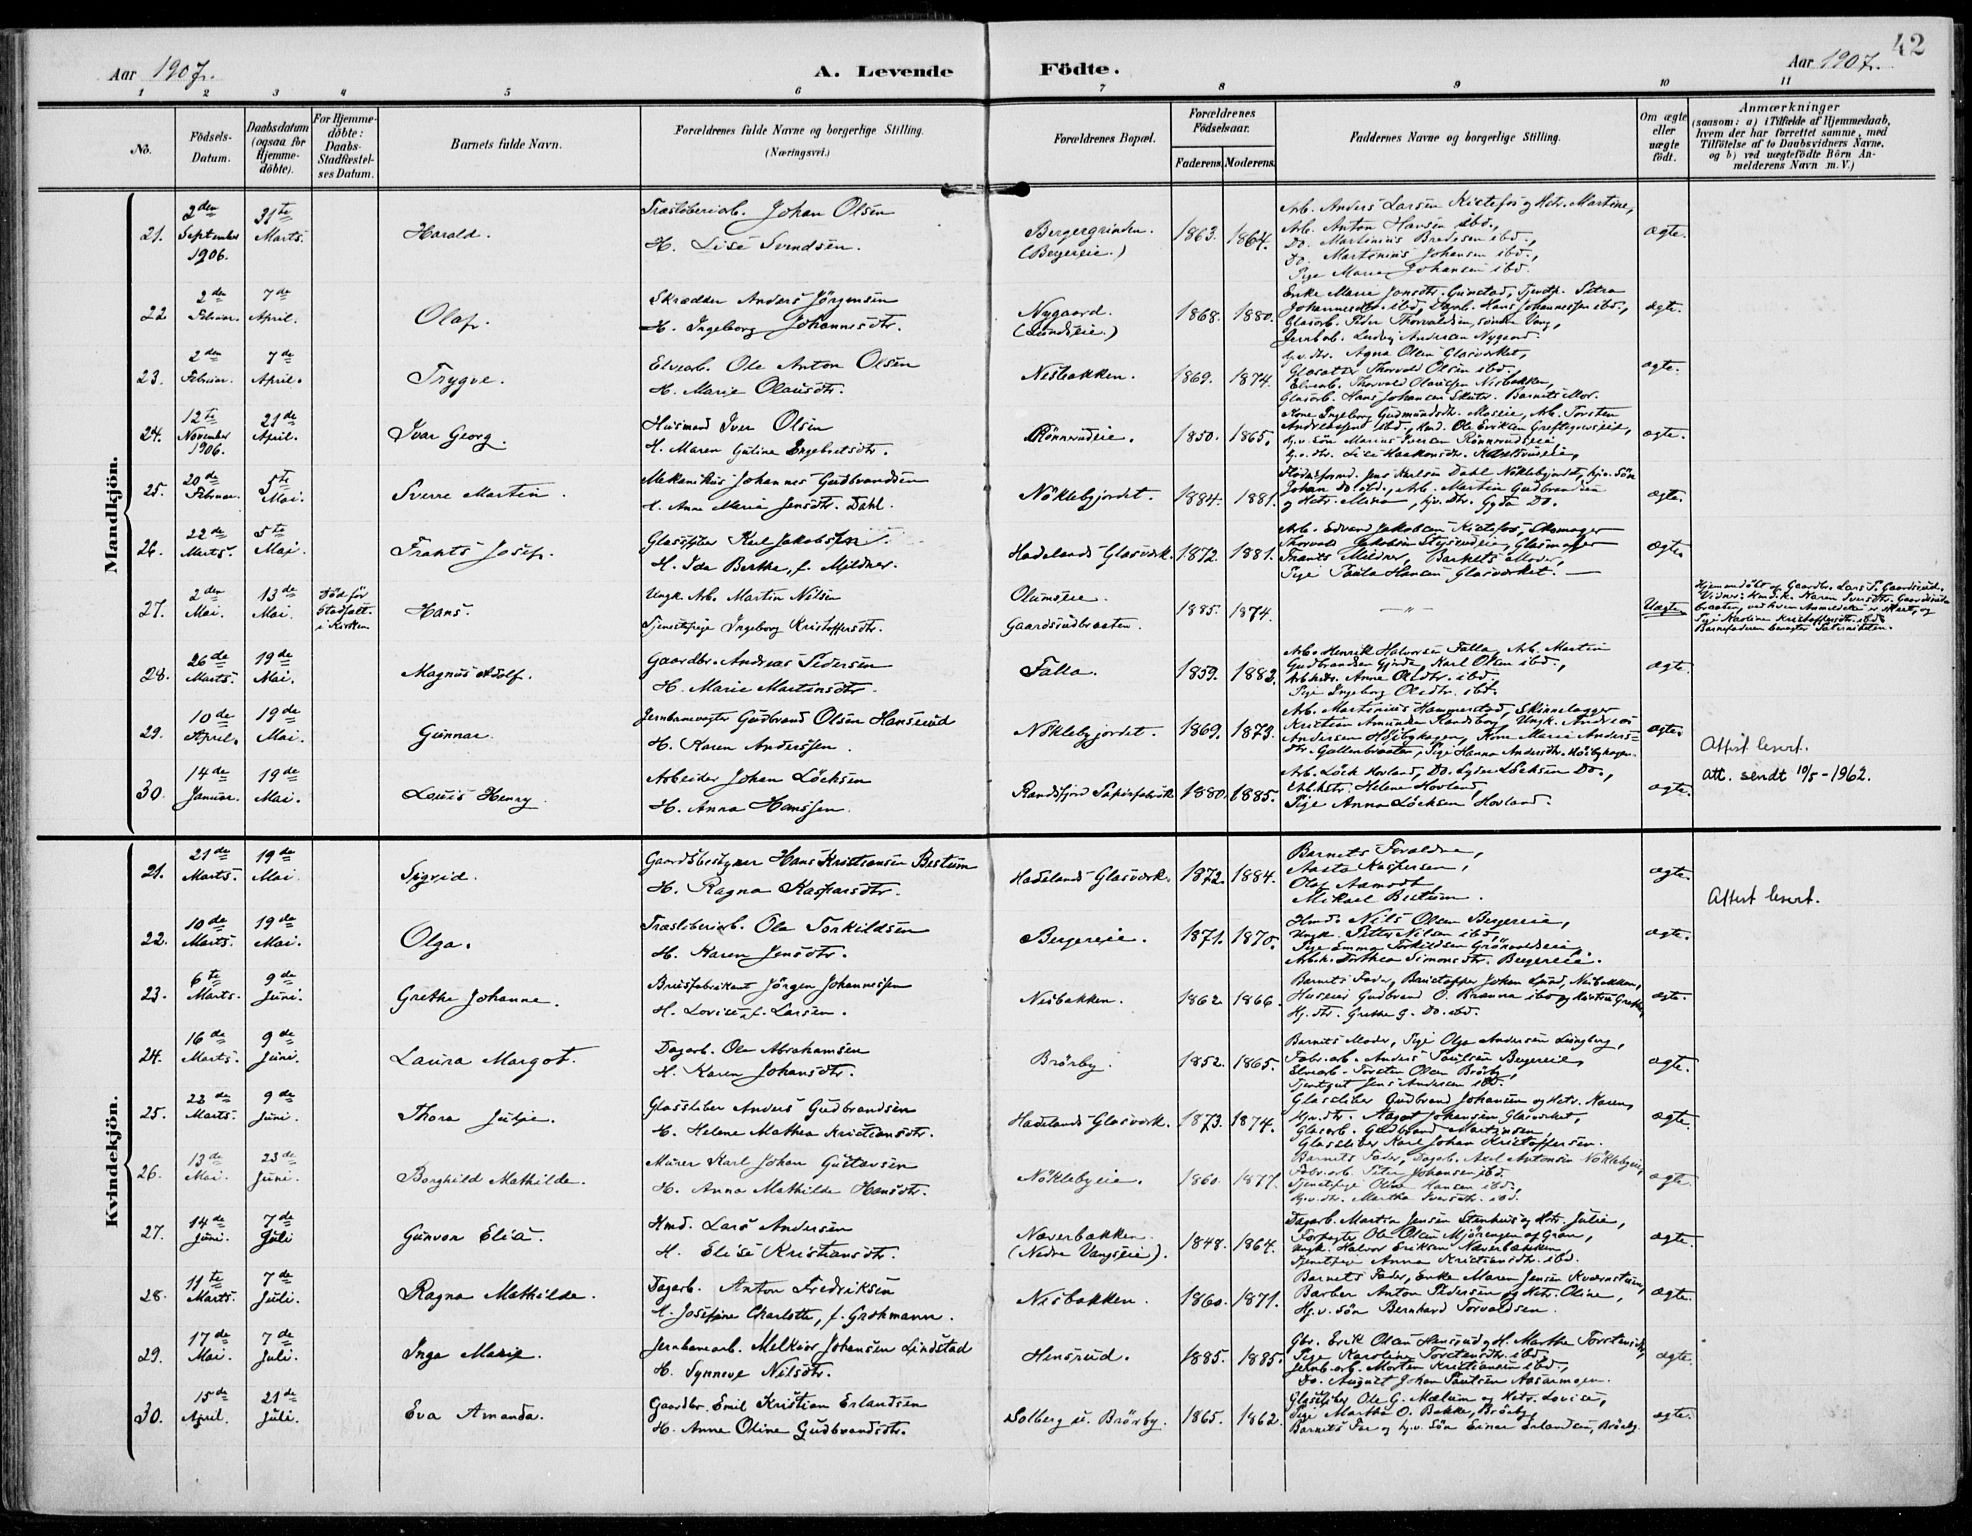 42
Aar 1907.
A. Levende
Födte.
Aar 1907.
1 2 3 4 5 6 7 8 9 10 11
No.
Födsels-
Datum.
Daabsdatum
(ogsaa for
Hjemme-
döbte).
For Hjemme-
döbte:
Daabs-
Stadfæstel-
ses Datum.
Barnets fulde Navn.
Forældrenes fulde Navne og borgerlige Stilling.
(Næringsvei.)
Forældrenes Bopæl.
Forældrenes
Födselsaar.
Faderens.
Moderens.
Faddernes Navne og borgerlige Stilling.
Om ægte
eller
uægte
födt.
Anmærkninger
(saasom: a) i Tilfælde af Hjemmedaab,
hvem der har forrettet samme, med
Tilföielse af to Daabsvidners Navne,
og b) ved uægtefödte Börn An-
melderens Navn m. V.)
Mandkjön.
21.
2den
September
1906.
31te
Marts.
Harald.
Træsliberiarb. Johan Olsen
H. Lise Svendsen.
Bergergrinden.
(Bergereie.)
1863. 1864.
Arb. Anders Larsen Kistefos og Hstr. Martine,
Arb. Anton Hansen ibd.,
Do. Martinius Bredesen ibd.,
Do. Martinius Johansen ibd.,
Pige Marie Johansen ibd.
ægte.
22
2den
Februar.
7de
April.
Olaf.
Skrædder Anders Jörgensen
H. Ingeborg Johannesdtr.
Nygaard.
(Lundseie.)
1868. 1880.
Enke Marie Jonsdtr. Gunstad, Tjenstp. Petra
Johannesdtr. ibd., Dagarb. Hans Johannessen ibd.,
Glasarb. Peder Thorvaldsen, söndre Vang,
Jernbarb. Ludvig Andersen Nygaard.
ægte.
23.
2den
Februar.
7de
April.
Trygve.
Elvearb. Ole Anton Olsen
H. Marie Olausdtr.
Nesbakken.
1869. 1874.
hj.v. dtr. Agna Olsen Glasværket,
Thorvald Olsen ibd.,
Elvearb. Thorvald Olausen Nesbakken,
Glasarb. Hans Johansen Barnets Mor.
ægte.
24.
12te
November
1906.
21de
April.
Ivar Georg.
Husmand Iver Olsen
H. Maren Gutine Engebretsdtr.
Rönnrudeie.
1850. 1865.
Kone Ingeborg Gudmundsdtr. Moseie, Arb. Torsten
ibd., Hmd. Ole Eriksen
hj.v. sön Marius Iversen Rönnrudseie,
hj.v. dtr. Lise Haakonsdtr.
ægte.
25.
20de
Februar.
5te
Mai.
Sverre Martin.
Mekanikus Johannes Gudbrandsen
H. Anne Marie Jensdtr. Dahl.
Nöklebyjordet.
1884. 1881.
Jens Karlsen Dahl Nöklebyjordet, hj.v. Sön
Johan Do. ibd., Arb. Martin Gudbrandsen
og Hstr. Mina, hj.v. Dtr. Gyda Do.
ægte.
26.
22de
Marts.
5te
Mai.
Frants Josef.
Glassliber Karl Jakobsen.
H. Ida Berthe, f. Mildner.
Hadelands Glasværk.
1872. 1881.
Arb. Edvard Jakobsen Kistefos, Skomager
Thorvald Jakobsen Glasmager
Frants Mildner, Barnets Moder,
Pige Paula Hansen Glasværket.
ægte.
27.
2den
Mai.
13de
Mai.
Död för
Stadfæst.
i Kirken
Hans.
Ungk. Arb. Martin Nilsen
Tjenestepige Ingeborg Kristoffersdtr.
Olumseie.
Gaardsrudbraaten.
1885. 1874.
— " —
Uægte
Hjemmedöbt af Gaardbr. Lars P. Gaardsrud.
Vidner: Karen Iversdtr. Gaardsrud-
braaten, ved hvem Anmeldelsen er skeet, og
Pige Karoline Kristoffersdtr. ibd.
Barnefaderen benægter Paterniteten.
28.
26de
Marts.
19de
Mai.
Magnus Adolf.
Gaardbr. Andreas Pedersen
H. Marie Martinsdtr.
Falla.
1859. 1882.
Arb. Henrik Halvorsen Falla, Arb. Martin
Gudbrandsen Karl Olsen ibd.,
Arb.hstr. Anne Olsdtr. ibd.,
Pige Ingeborg Olsdtr. ibd.
ægte
29.
10de
April.
19de
Mai.
Gunnar.
Jernbanevogter Gudbrand Olsen Hansrud
H. Karen Anderssen.
Nöklebyjordet.
1869. 1873.
Arb. Martinius Hammerstad, Skinnelægger
Kristian Amundsen Randsborg, Ungk. Andreas
Andersen Höibyhagen, Kone Marie Anders-
dtr. Gullenbraaten, Pige Hanna Andersdtr. Höibyhagen.
ægte.
Attest levert.
att. sendt 10/5-1962.
30.
14de
Januar.
19de
Mai.
Louis Henry.
Arbeider Johan Löcksen
H. Anna Hanssen.
Randsfjord Papirfabrik
1880. 1885.
Arb. Löck Hovland, Do. Löcksen Do.,
Arb.hstr. Helene Hovland,
Pige Anna Löcksen Hovland.
ægte.
Kvindekjön.
21.
21de
Marts.
19de
Mai.
Sigrid.
Gaardsbestyrer Hans Kristiansen Bestum
H. Ragna Kaspersdtr.
Hadelands Glasværk.
1872. 1884.
Barnets Forældre,
Aasta Kaspersen,
Olaf Aamodt,
Mikael Bestum.
ægte.
Attest levert.
22.
10de
Marts.
19de
Mai.
Olga.
Træsliberiarb. Ole Torkildsen
H. Karen Jensdtr.
Bergereie.
1871. 1870.
Hmd. Nils Olsen Bergereie,
Ungk. Peter Nilsen ibd.,
Pige Emma Torkildsen Grönvoldseie,
Arb.h. Dorthea Simonsdtr. Bergereie.
ægte.
23.
6te
Marts.
9de
Juni.
Grethe Johanne.
Brusfabrikant Jörgen Johannessen
H. Lovise, f. Larsen.
Nesbakken.
1862 1866.
Barnets Fader, Brustapper Johan Nesbakken,
Huseier Gudbrand O. Brænna ibd. og Hustru Grethe,
Hj. dtr. Grethe G. Do. ibd.
ægte.
24.
16de
Marts.
9de
Juni.
Laura Margot.
Dagarb. Ole Abrahamsen
H. Karen Johansdtr.
Brörby.
1852. 1865.
Barnets Moder, Pige Olga Andersen Ljungberg,
Fabr.arb. Anders Paulsen Bergereie,
Elvearb. Torsten Olsen Brörby,
Tjenstgut Jens Andersen ibd.
ægte.
25.
22de
Marts.
9de
Juni.
Thora Julie.
Glassliber Anders Gudbrandsen
H. Helene Mathea Kristiansdtr.
Hadelands Glasværk.
1873. 1874.
Glassliber Gudbrand Johansen og Hstr. Karen,
Hj.v.dtr. Aagot Johansen Glasværket,
Glasarb. Gudbrand Martinsen,
Glassliber Karl Johan Kristoffersen.
ægte.
26.
13de
Mai.
23de
Juni.
Borghild Mathilde.
Murer Karl Johan Gustavsen
H. Anna Mathilde Hansdtr.
Nöklebyeie.
1860. 1877.
Barnets Fader, Dagarb. Axel Antonsen Nöklebyeie,
Fabr.arb. Peter Johansen ibd.,
Tjenstpige Oline Hansen ibd.,
Hj.v.dtr. Martha Iversdtr. ibd.
ægte.
27.
14de
Juni.
7de
Juli
Gunvor Elise.
Hmd. Lars Andersen
H. Elise Kristiansdtr.
Næverbakken.
(Nedre Vangseie).
1848. 1864.
Dagarb. Martin Jensen Stenhus og Hstr. Julie,
Forpagter Ole Olsen Mjörengen af Gran,
Ungk. Halvor Eriksen Næverbakken,
Tjenstpige Anna Kristiansdtr. ibd.
ægte.
28.
11te
Marts.
7de
Juli.
Ragna Mathilde.
Dagarb. Anton Fredriksen
H. Josefine Charlotte, f. Grohmann.
Nesbakken.
1860. 1871.
Barnets Fader, Enke Maren Jensen Kværnstuen,
Barber Anton Pedersen og Hstr. Oline,
Hj.v. Sön Bernhard Torvaldsen.
ægte.
29.
17de
Mai.
7de
Juli.
Inga Marie.
Jernbanearb. Melkior Johansen Lindstad
H. Synneve Nilsdtr.
Hensrud.
1885. 1885.
Gbr. Erik Olsen Hensrud og H. Marthe Torstensdtr,
Pige Karoline Torstensdtr. ibd.,
Jernb.arb. Morten Kristiansen ibd.,
Do. August Johan Paulsen Aasarmoen.
ægte.
30.
15de
April.
21de
Juli.
Eva Amanda.
Gaardbr. Emil Kristian Erlandsen
H. Anne Oline Gudbrandsdtr.
Solberg u. Brörby.
1865. 1862.
Ole G. Mælum og Hstr. Lovise,
Pige Marthe O. Bakke, Brörby,
Barnets Far og hj.v. Sön Einar Erlandsen, Brörby.
ægte.